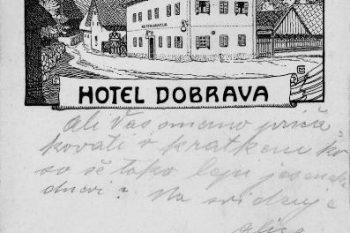 HOTEL DOBRAVA
Ali Vas smemo priča
kovati v kratkem ko
so še tako lepi jesenski
dnevi? Na svidenje